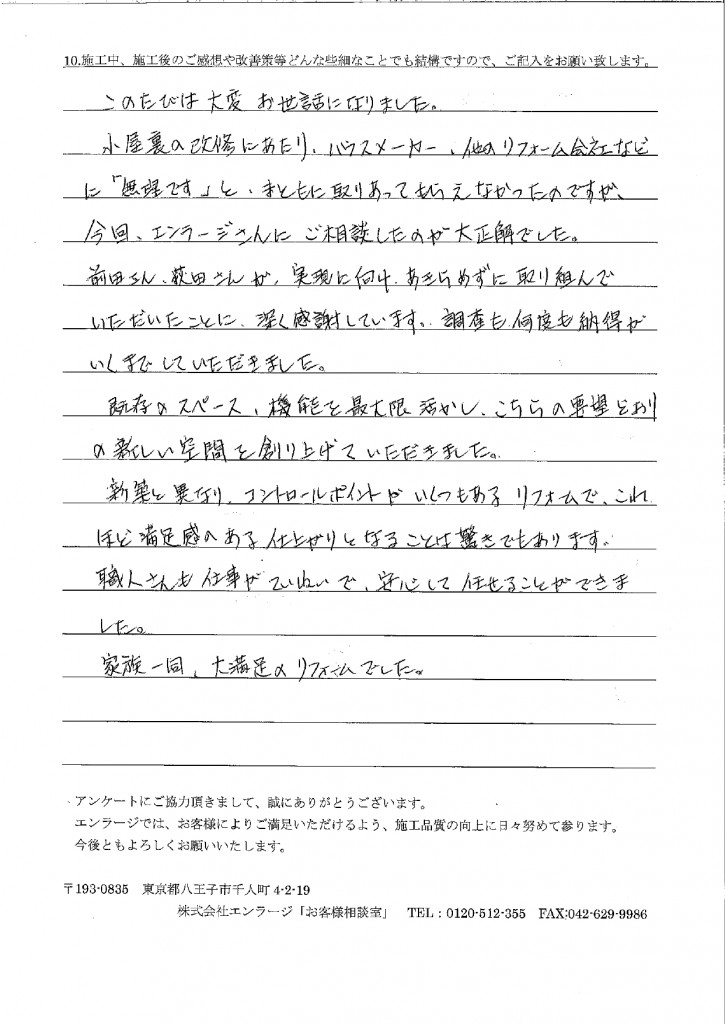 10.施工中、施工後のご感想や改善策等どんな些細なことでも結構ですので、ご記入をお願い致します。
このたびは大変お世話になりました。
小屋裏の改修にあたり、ハウスメーカー、他のリフォーム会社など
に「無理です」と、まともに取りあってもらえなかったのですが、
今回、エンラージさんにご相談したのが大正解でした。
前田さん、萩田さんが、実現に向け、あきらめずに取り組んで
いただいたことに、深く感謝しています。調査も何度も納得が
いくまでしていただきました。
既存のスペース、機能を最大限活かし、こちらの要望どおり
の新しい空間を創り上げていただきました。
新築と異なり、コントロールポイントがいくつもあるリフォームで、これ
ほど満足感のある仕上がりとなることは驚きでもあります。
職人さんも仕事がていねいで、安心して任せることができま
した。
家族一同、大満足のリフォームでした。
アンケートにご協力頂きまして、誠にありがとうございます。
エンラージでは、お客様によりご満足いただけるよう、施工品質の向上に日々努めて参ります。
今後ともよろしくお願いいたします。
〒193-0835 東京都八王子市千人町4-2-19
株式会社エンラージ「お客様相談室」 TEL：0120-512-355 FAX:042-629-9986